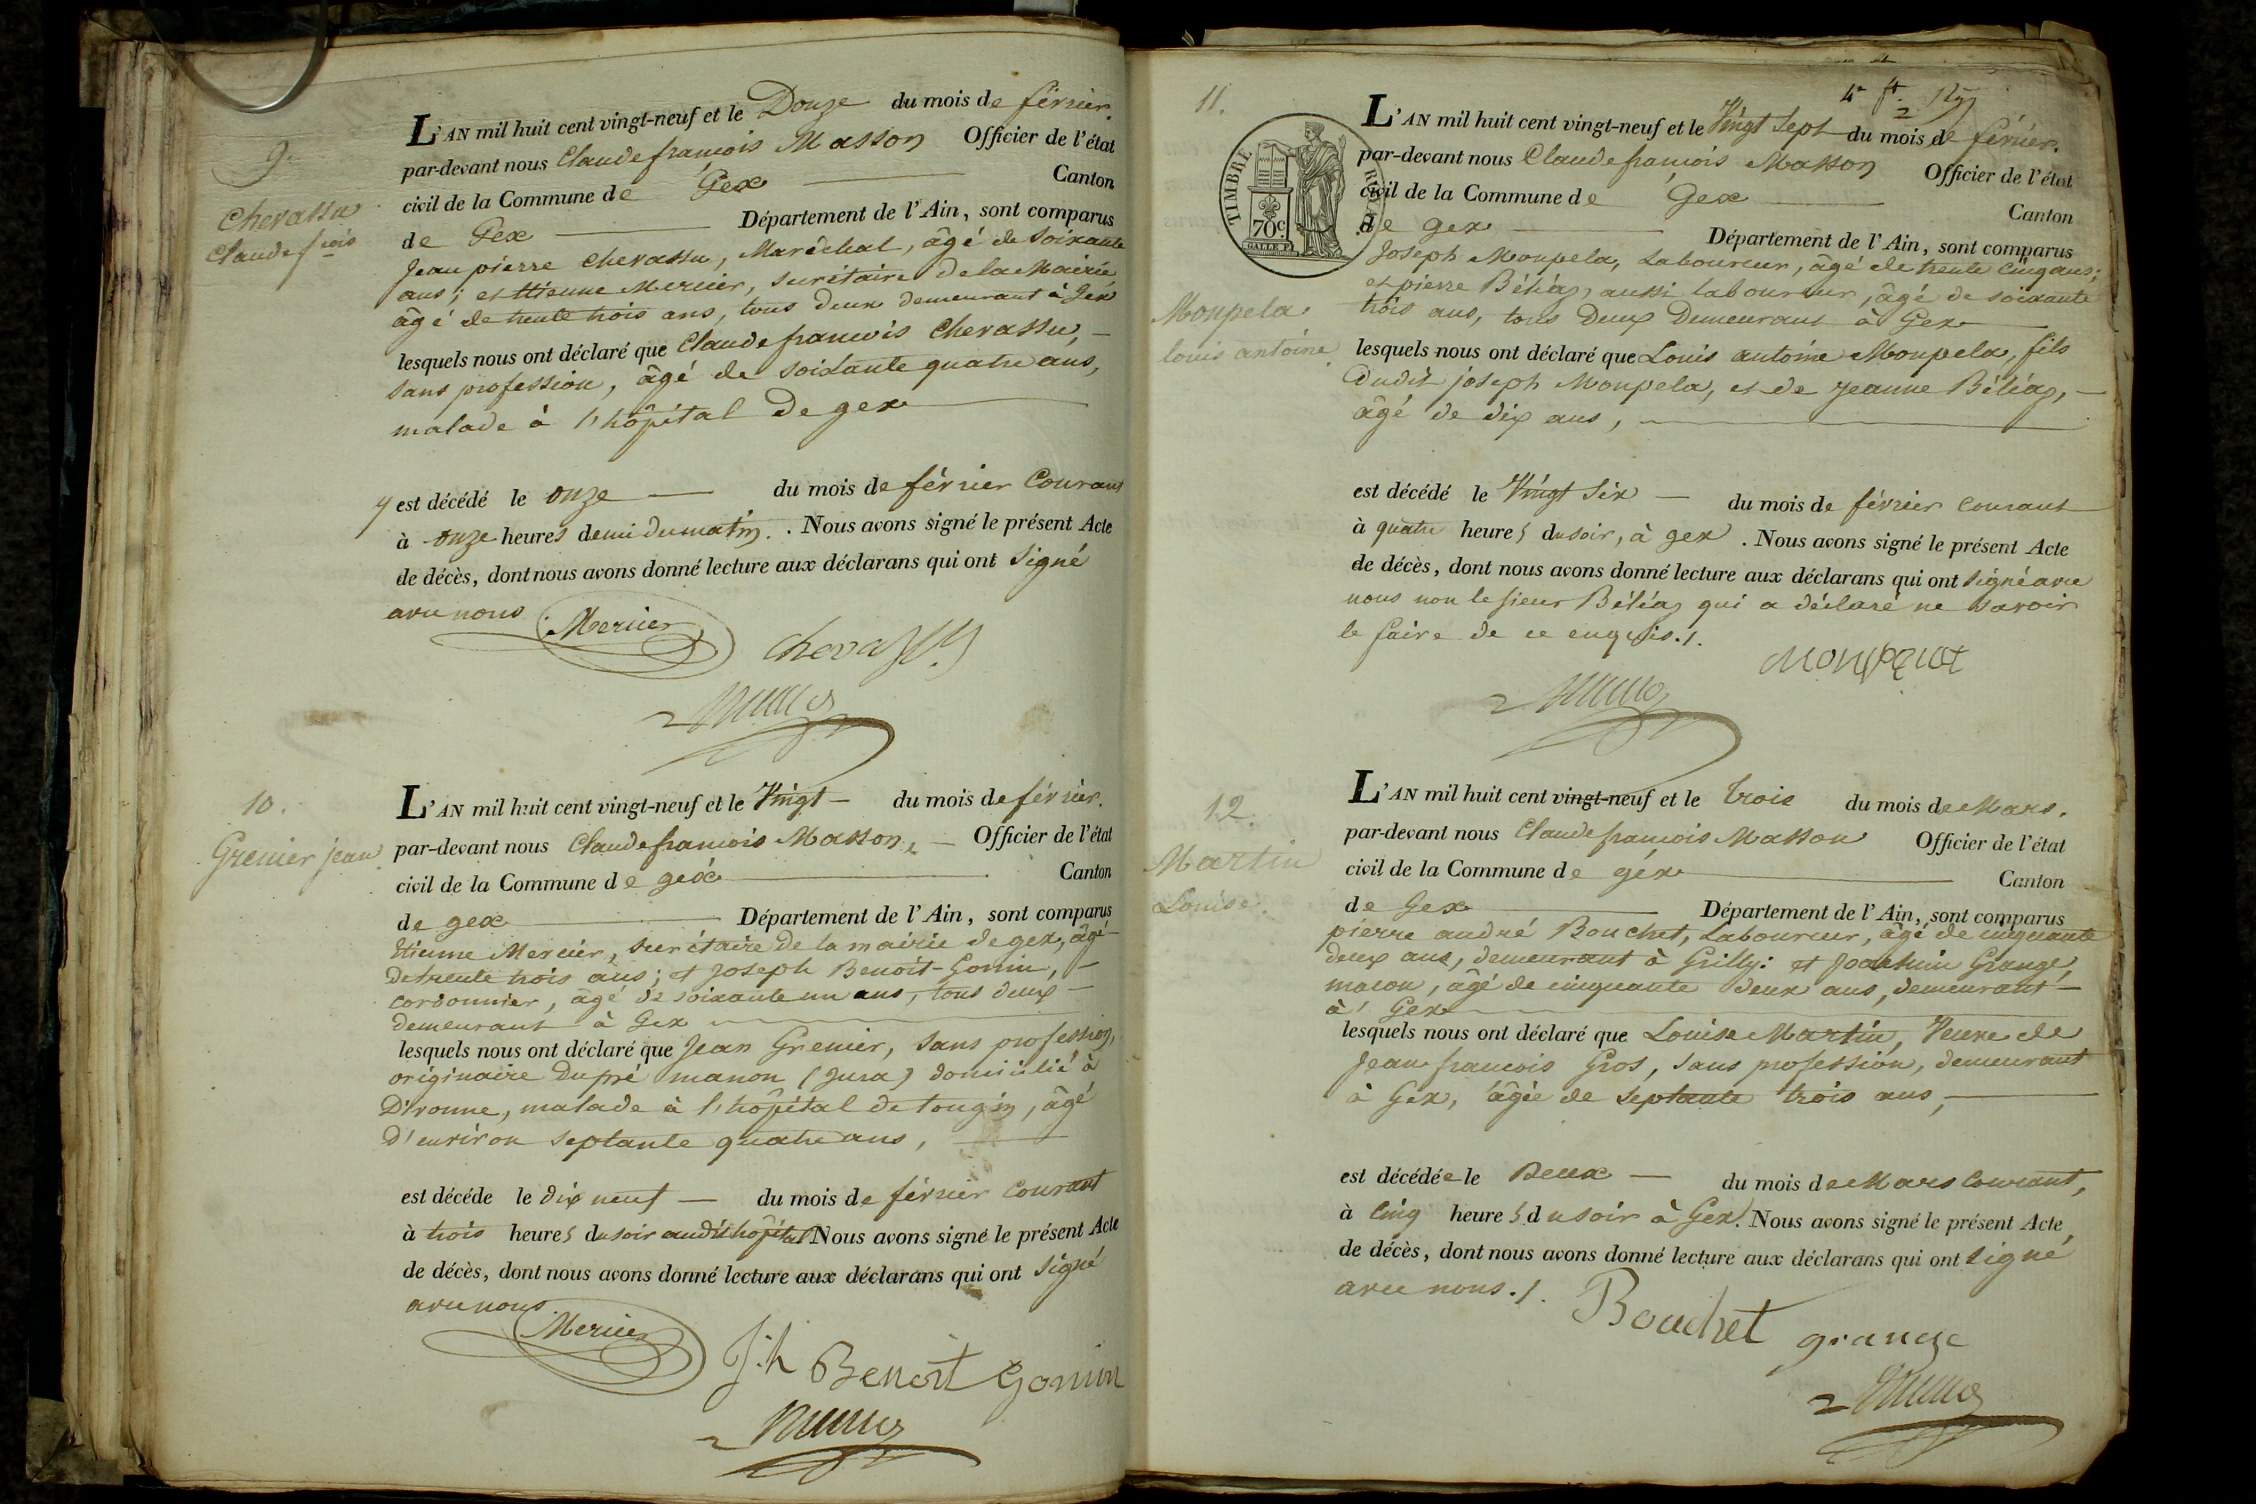 9.
Chevassu
Claude frois
L'AN mil huit cent vingt-neuf et le Douze du mois de février.
par-devant nous Claude françois Masson Officier de l'état
civil de la Commune de Gex Canton
de Gex Département de l'Ain, sont comparus
Jean pierre Chevassu, Maréchal, âgé de soixante
ans; et Etienne Mercier, secrétaire de la Mairie
âgé de trente trois ans, tous deux demeurant à Gex
lesquels nous ont déclaré que Claude francois Chevassu,
sans profession, âgé de soixante quatre ans,
malade à l'hôpital De gex
y est décédé le onze du mois de février Courant
à onze heures demi du matin. . Nous avons signé le présent Acte
de décès, dont nous avons donné lecture aux déclarans qui ont signé
avec nous
Mercier
Chevassu
10.
Grenier jean
L'AN mil huit cent vingt-neuf et le Vingt du mois de février.
par-devant nous Claude francois Masson, Officier de l'état
civil de la Commune de gex Canton
de gex Département de l'Ain, sont comparus
Etienne Mercier, secrétaire de la mairie de gex, âgé
de trente trois ans; et Joseph Benoit-Gonin,
cordonnier, âgé de soixante un ans, tous deux
demeurant à Gex
lesquels nous ont déclaré que Jean Grenier, sans profession,
originaire Du pré manon (Jura) domicilié à
D'ivonne, malade à l'hôpital de tougin, âgé
d'environ septante quatre ans,
est décédé le dix neuf du mois de février courant
à trois heures du soir audit hôpital Nous avons signé le présent Acte
de décès, dont nous avons donné lecture aux déclarans qui ont signé
avec nous
Mercier
J.h Benoit Gonin
11.
TIMBRE
70c.
Monpela
louis antoine
L'AN mil huit cent vingt-neuf et le Vingt Sept du mois de février.
par-devant nous Claude françois Masson Officier de l'état
civil de la Commune de Gex Canton
de gex Département de l'Ain, sont comparus
Joseph Monpela, Laboureur, âgé de trente cinq ans;
et pierre Béléaz, aussi laboureur, âgé de soixante
trois ans, tous Deux Demeurant à Gex
lesquels nous ont déclaré que Louis antoine Monpela, fils
dudit joseph Monpela, et de Jeanne Béléaz,
âgé de dix ans,
est décédé le Vingt Six du mois de février courant
à quatre heures du soir, à gex . Nous avons signé le présent Acte
de décès, dont nous avons donné lecture aux déclarans qui ont signé avec
nous non le sieur Béléaz qui a déclaré ne savoir
le faire de ce enquis./.
12.
Martin
Louise.
L'AN mil huit cent vingt-neuf et le trois du mois de Mars.
par-devant nous Claude françois Masson Officier de l'état
civil de la Commune de géx Canton
de Gex Département de l'Ain, sont comparus
pierre andré Bouchet, Laboureur, âgé de cinquante
deux ans, demeurant à Grilly: et Joachim Grange,
macon, âgé de cinquante deux ans, demeurant
à Gex
lesquels nous ont déclaré que Louise Martin, Veuve de
Jean francois Gros, sans profession, demeurant
à Gex, âgée de septante trois ans,
est décédée le Deux du mois de Mars Courant,
à Cinq heures du soir à Gex. Nous avons signé le présent Acte
de décès, dont nous avons donné lecture aux déclarans qui ont signé
avec nous./.
Bouchet grange